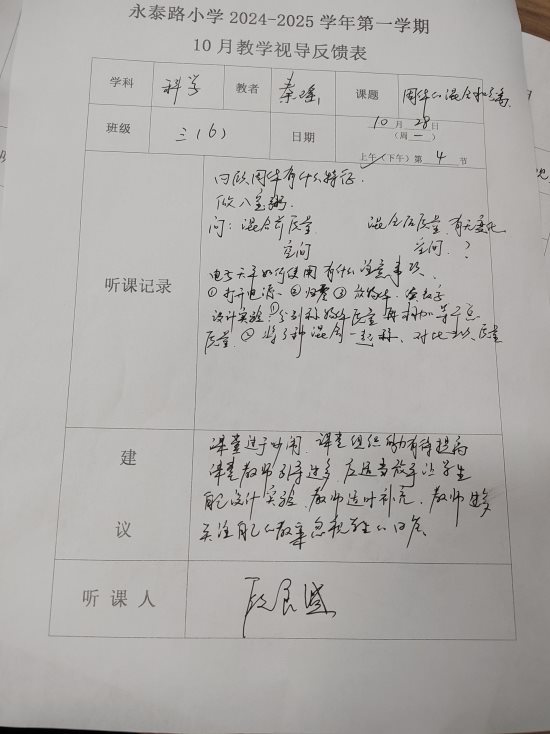 永泰路小学 2024-2025 学年第一学期
10 月教学视导反馈表
学科 科学 教者 秦瑶 课题 固体的混合和分离
班级 三(6) 日期 10月28日
(周一)
上午(下午)第 4 节
听课记录
回顾固体有什么特征.
做八宝粥.
问: 混合前质量 混合后质量 有无变化
空间 空间 ?
电子天平如何使用 有什么注意事项.
①打开电源、②归零 ③放物体. 读数字
设计实验: ①分别称物体质量 再相加等于总
质量. ②将3种混合一起称. 对比 质量
建
议
课堂过于吵闹, 课堂组织能力有待提高
课堂教师引导过多, 应适当放手让学生
自己设计实验, 教师适时补充, 教师过多
关注自己的教案忽视学生的回答.
听课人